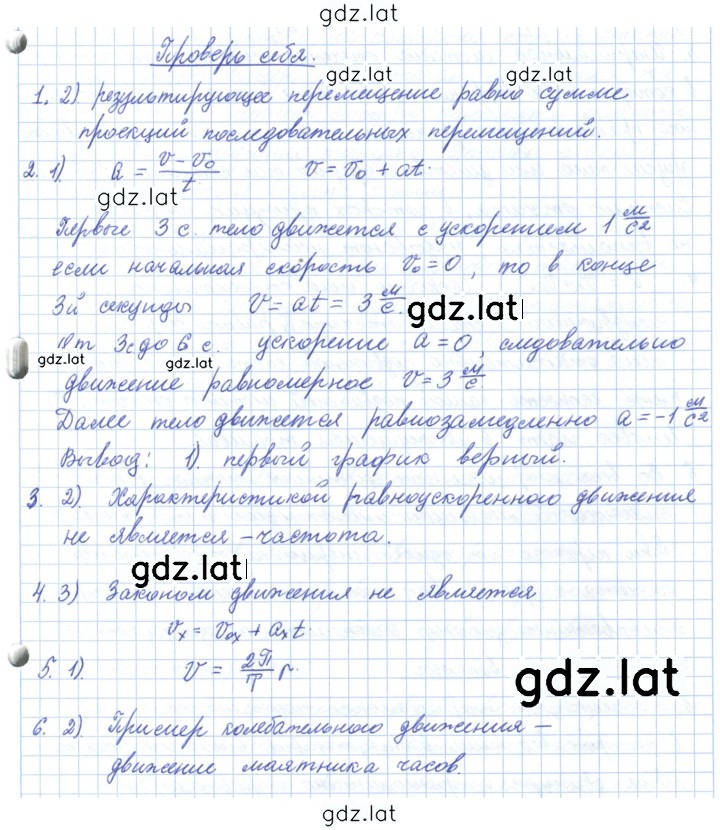 gdz.lat
Проверь себя.
gdz.lat
1. 2) результирующее перемещение равно сумме
проекций последовательных перемещений.
2. 1) a = (v - v₀)/t v = v₀ + at.
gdz.lat
Первые 3 с. тело движется с ускорением 1 м/с²
если начальная скорость v₀ = 0, то в конце
3й секунды v = at = 3 м/с.
gdz.lat
От 3с до 6 с. ускорение a = 0, следовательно
gdz.lat gdz.lat
движение равномерное v = 3 м/с
Далее тело движется равнозамедленно a = -1 м/с²
Вывод: 1). первый график верный.
3. 2). Характеристикой равноускоренного движения
не является - частота.
gdz.lat
4. 3) Законом движения не является
vₓ = v₀ₓ + aₓt.
5. 1). v = 2П/T r.
gdz.lat
6. 2). Пример колебательного движения —
движение маятника часов.
gdz.lat